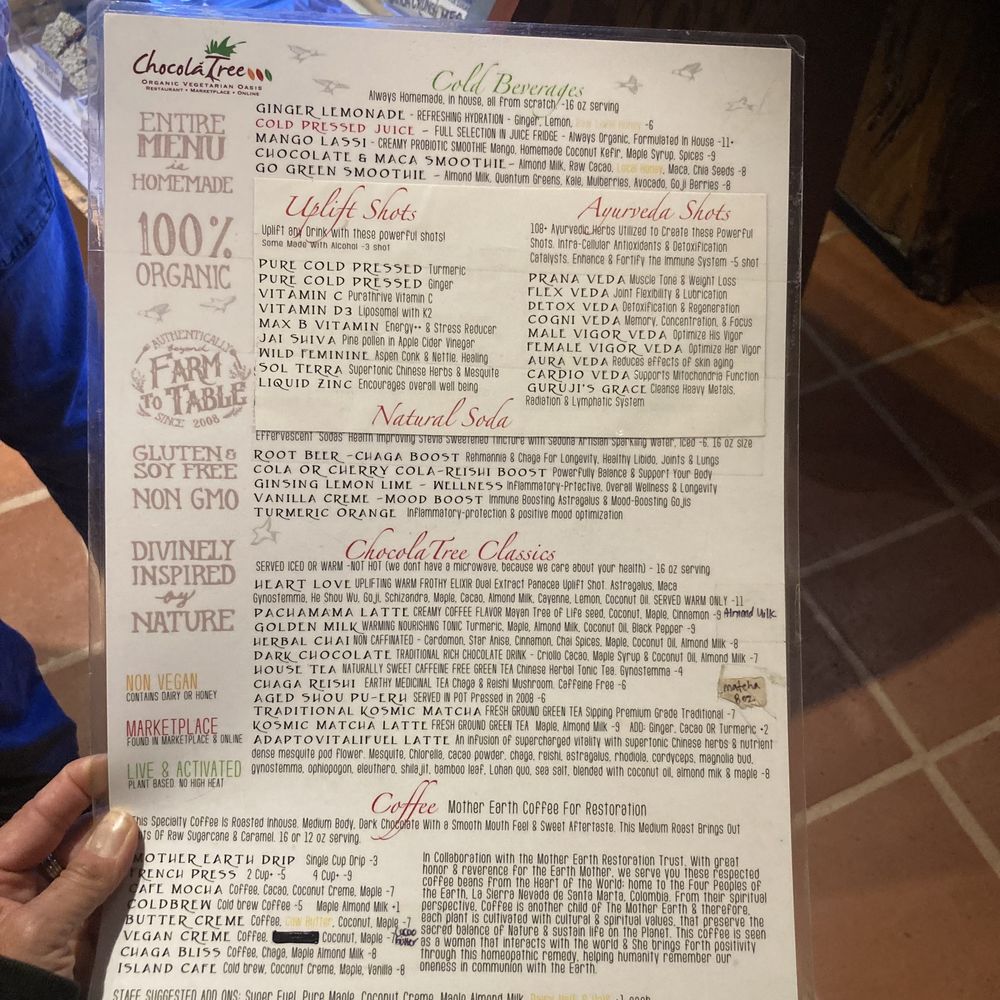 ChocolaTree
ORGANIC VEGETARIAN OASIS
RESTAURANT • MARKETPLACE • ONLINE
ENTIRE
MENU
is
HOMEMADE
100%
ORGANIC
AUTHENTICALLY
beyond
FARM
TO TABLE
SINCE 2008
GLUTEN &
SOY FREE
NON GMO
DIVINELY
INSPIRED
by
NATURE
NON VEGAN
CONTAINS DAIRY OR HONEY
MARKETPLACE
FOUND IN MARKETPLACE & ONLINE
LIVE & ACTIVATED
PLANT BASED. NO HIGH HEAT
Cold Beverages
Always Homemade, in house, all from scratch/ -16 oz serving
GINGER LEMONADE - REFRESHING HYDRATION - Ginger, Lemon, -6
COLD PRESSED JUICE - FULL SELECTION IN JUICE FRIDGE - Always Organic, Formulated In House -11+
MANGO LASSI - CREAMY PROBIOTIC SMOOTHIE Mango, Homemade Coconut Kefir, Maple Syrup, Spices -9
CHOCOLATE & MACA SMOOTHIE - Almond Milk, Raw Cacao, Local Honey, Maca, Chia Seeds -8
GO GREEN SMOOTHIE - Almond Milk, Quantum Greens, Kale, Mulberries, Avocado, Goji Berries -8
Uplift Shots
Uplift any Drink with these powerful shots!
Some Made With Alcohol -3 shot
PURE COLD PRESSED Turmeric
PURE COLD PRESSED Ginger
VITAMIN C Purathrive Vitamin C
VITAMIN D3 Liposomal with K2
MAX B VITAMIN Energy++ & Stress Reducer
JAI SHIVA Pine pollen in Apple Cider Vinegar
WILD FEMININE Aspen Conk & Nettle, Healing
SOL TERRA Supertonic Chinese Herbs & Mesquite
LIQUID ZINC Encourages overall well being
Ayurveda Shots
108+ Ayurvedic Herbs Utilized to Create These Powerful
Shots. Intra-Cellular Antioxidants & Detoxification
Catalysts. Enhance & Fortify the Immune System -5 shot
PRANA VEDA Muscle Tone & Weight Loss
FLEX VEDA Joint Flexibility & Lubrication
DETOX VEDA Detoxification & Regeneration
COGNI VEDA Memory, Concentration, & Focus
MALE VIGOR VEDA Optimize His Vigor
FEMALE VIGOR VEDA Optimize Her Vigor
AURA VEDA Reduces effects of skin aging
CARDIO VEDA Supports Mitochondria Function
GURUJI'S GRACE Cleanse Heavy Metals,
Radiation & Lymphatic System
Natural Soda
Effervescent Sodas Health Improving Stevia Sweetened Tincture with Sedona Artisian Sparkling Water, Iced -6. 16 oz size
ROOT BEER -CHAGA BOOST Rehmannia & Chaga For Longevity, Healthy Libido, Joints & Lungs
COLA OR CHERRY COLA-REISHI BOOST Powerfully Balance & Support Your Body
GINSING LEMON LIME - WELLNESS Inflammatory-Prtective, Overall Wellness & Longevity
VANILLA CREME -MOOD BOOST Immune Boosting Astragalus & Mood-Boosting Gojis
TURMERIC ORANGE Inflammatory-protection & positive mood optimization
ChocolaTree Classics
SERVED ICED OR WARM -NOT HOT (we dont have a microwave, because we care about your health) - 16 oz serving
HEART LOVE UPLIFTING WARM FROTHY ELIXIR Dual Extract Panacea Uplift Shot, Astragalus, Maca
Gynostemma, He Shou Wu, Goji, Schizandra, Maple, Cacao, Almond Milk, Cayenne, Lemon, Coconut Oil. SERVED WARM ONLY -11
PACHAMAMA LATTE CREAMY COFFEE FLAVOR Mayan Tree of Life seed, Coconut, Maple, Cinnamon -9 Almond Milk
GOLDEN MILK WARMING NOURISHING TONIC Turmeric, Maple, Almond Milk, Coconut Oil, Black Pepper -9
HERBAL CHAI NON CAFFINATED - Cardomon, Star Anise, Cinnamon, Chai Spices, Maple, Coconut Oil, Almond Milk -8
DARK CHOCOLATE TRADITIONAL RICH CHOCOLATE DRINK - Criollo Cacao, Maple Syrup & Coconut Oil, Almond Milk -7
HOUSE TEA NATURALLY SWEET CAFFEINE FREE GREEN TEA Chinese Herbal Tonic Tea, Gynostemma -4
CHAGA REISHI EARTHY MEDICINAL TEA Chaga & Reishi Mushroom. Caffeine Free -6
matcha
8oz
AGED SHOU PU-ERH SERVED IN POT Pressed in 2008 -6
TRADITIONAL KOSMIC MATCHA FRESH GROUND GREEN TEA Sipping Premium Grade Traditional -7
KOSMIC MATCHA LATTE FRESH GROUND GREEN TEA Maple, Almond Milk -9 ADD: Ginger, Cacao OR Turmeric +2
ADAPTOVITALIFUEL LATTE An infusion of supercharged vitality with supertonic Chinese herbs & nutrient
dense mesquite pod flower. Mesquite, Chlorella, cacao powder, chaga, reishi, astragalus, rhodiola, cordyceps, magnolia bud,
gynostemma, ophiopogon, eleuthero, shilajit, bamboo leaf, Lohan quo, sea salt, blended with coconut oil, almond milk & maple -8
Coffee Mother Earth Coffee For Restoration
This Specialty Coffee Is Roasted Inhouse, Medium Body, Dark Chocolate With a Smooth Mouth Feel & Sweet Aftertaste. This Medium Roast Brings Out
Of Raw Sugarcane & Caramel. 16 or 12 oz serving.
MOTHER EARTH DRIP Single Cup Drip -3
FRENCH PRESS 2 Cup+ -5 4 Cup+ -9
CAFE MOCHA Coffee, Cacao, Coconut Creme, Maple -7
COLDBREW Cold brew Coffee -5 Maple Almond Milk +1
BUTTER CREME Coffee, Cow Butter, Coconut, Maple -7
VEGAN CREME Coffee, Coconut, Maple -7 cacao butter
CHAGA BLISS Coffee, Chaga, Maple Almond Milk -8
ISLAND CAFE Cold brew, Coconut Creme, Maple, Vanilla -8
In Collaboration with the Mother Earth Restoration Trust. With great
honor & reverence for the Earth Mother, we serve you these respected
coffee beans from the Heart of the World; home to the Four Peoples of
the Earth, La Sierra Nevada de Santa Marta, Colombia. From their spiritual
perspective, Coffee is another child of The Mother Earth & therefore,
each plant is cultivated with cultural & spiritual values, that preserve the
sacred balance of Nature & sustain life on the Planet. This coffee is seen
as a woman that interacts with the world & She brings forth positivity
through this homeopathic remedy, helping humanity remember our
oneness in communion with the Earth.
STAFF SUGGESTED ADD ONS: Super Fuel, Pure Maple, Coconut Creme, Maple Almond Milk, Dairy Half & Half +1 each